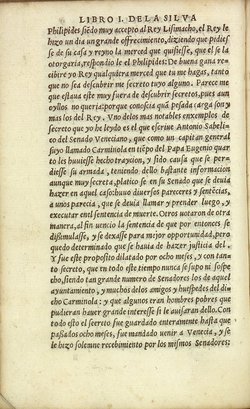 LIBRO I. DE LA SILVA
Philipides siẽdo muy accepto al Rey Lisimacho, el Rey le
hizo un dia un grande offrecimento, diziendo que pidies
se de su casa y reyno la merced que quisiesse, que el se la o
torgaria, respondio le el Philipides: De buena gana re
cibire yo Rey qualquiera merced que tu me hagas, tanto
que no sea descubrir me secreto tuyo alguno. Parece me
que estaua este muy fuera de descubrir secretos, pues aun
oyllos no queria: porque conoscia quã pesada carga son y
mas los del Rey. Vno delos mas notables enxemplos de
secreto que yo he leydo es el que escriue Antonio Sabeli
co del Senado Veneciano, que como un capitan general
suyo llamado Carminola en tiẽpo del Papa Eugenio quar
to les huuiesse hecho traycion, y sido causa que se per
diesse su armada, teniendo dello bastante informacion
aunque muy secreta, platico se en su Senado que se deuia
hazer en aquel caso: huuo diuersos pareceres y sentẽcias,
a unos parecia, que se deuia llamar y prender luego, y
executar enel sentencia de muerte. Otros uotaron de otra
manera, al fin uencio la sentencia de que por entonces se
dissimulasse, y se dexasse para mejor opportunidad, pero
quedo determinado que se hauia de hazer justicia del.
Y fue este proposito dilatado por ocho meses, y con tan
to secreto, que en todo este tiempo nunca se supo ni sospe
cho, siendo tan grande numero de Senadores los de aquel
ayuntamiento, y muchos delos amigos y huespedes del di
cho Carminola; y que algunos eran hombres pobres que
pudieran hauer grande interesse si le auisaran dello. Con
todo esto el secreto fue guardado enteramente hasta que
passados ocho meses, fue mandado uenir a Venecia, y se
le hizo solenne recebimiento por los mismos Senadores;